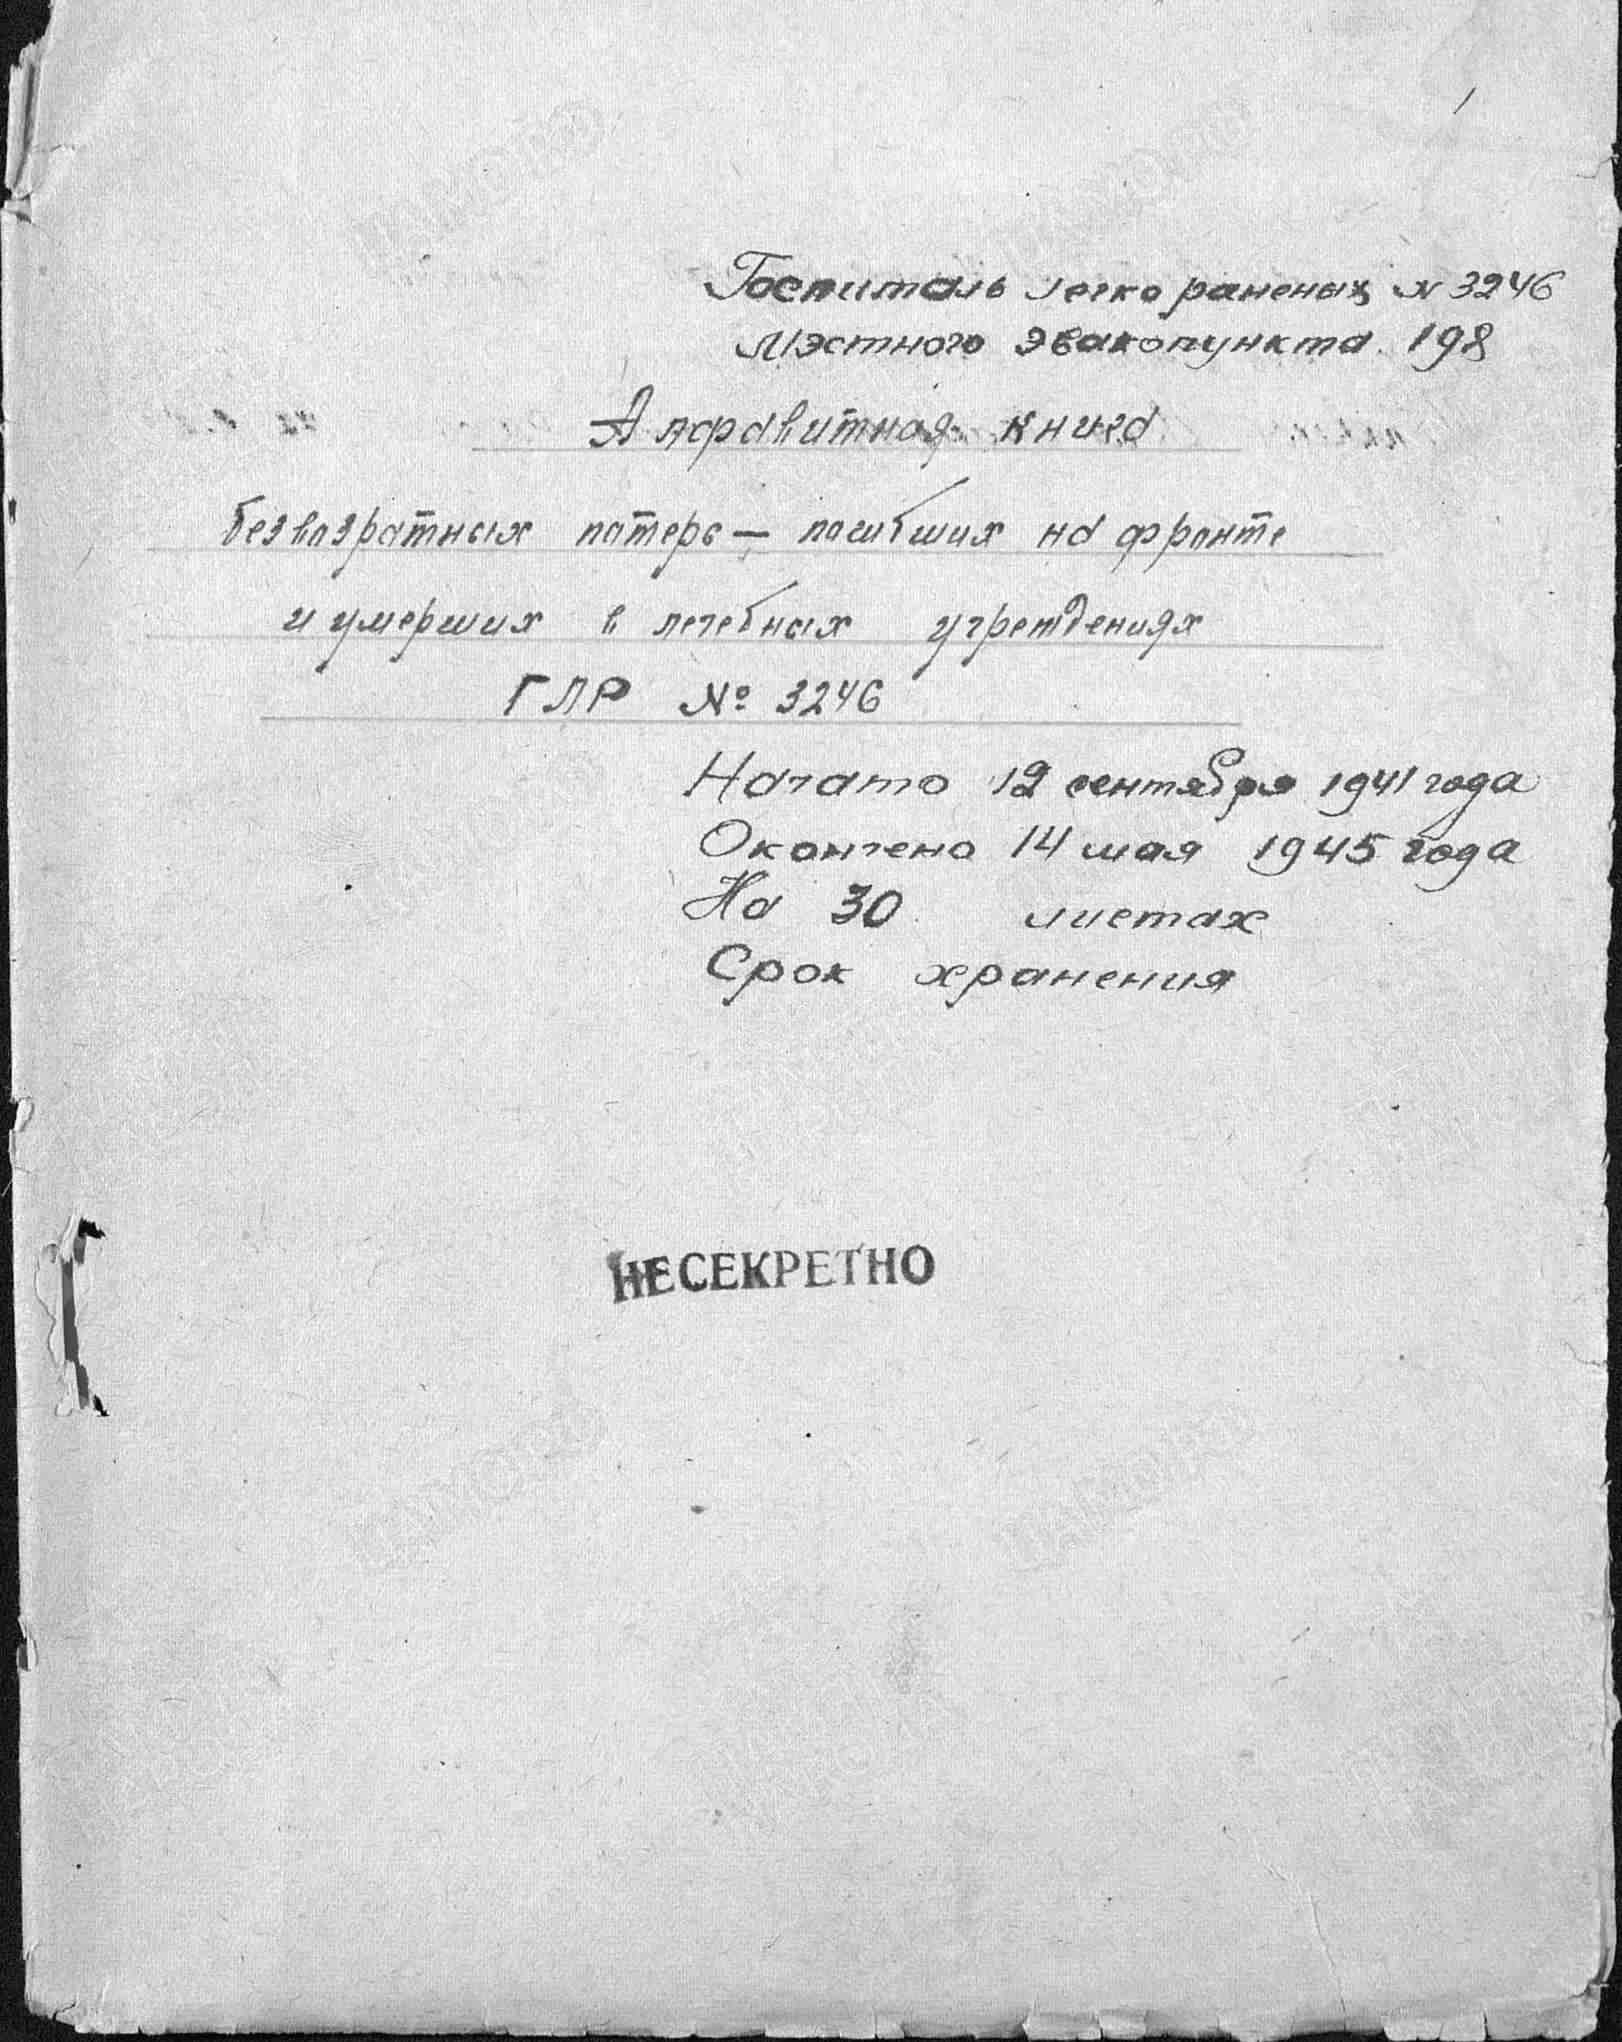 1
Госпиталь легко раненых № 3246
Мэстного эвакопункта 198
Алфавитная книга
безвозратных потерь — погибших на фронте
и умерших в лечебных учреждениях
ГЛР № 3246
Начато 12 сентября 1941 года
Окончено 14 мая 1945 года
На 30 листах
Срок хранения
НЕСЕКРЕТНО